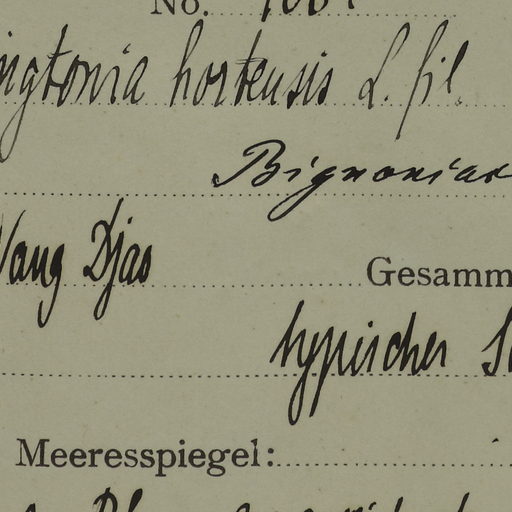 No.
ingtonia hortensis L. fil.
Bignoniac
Wang Djao
Gesamm
typischer
Meeresspiegel: